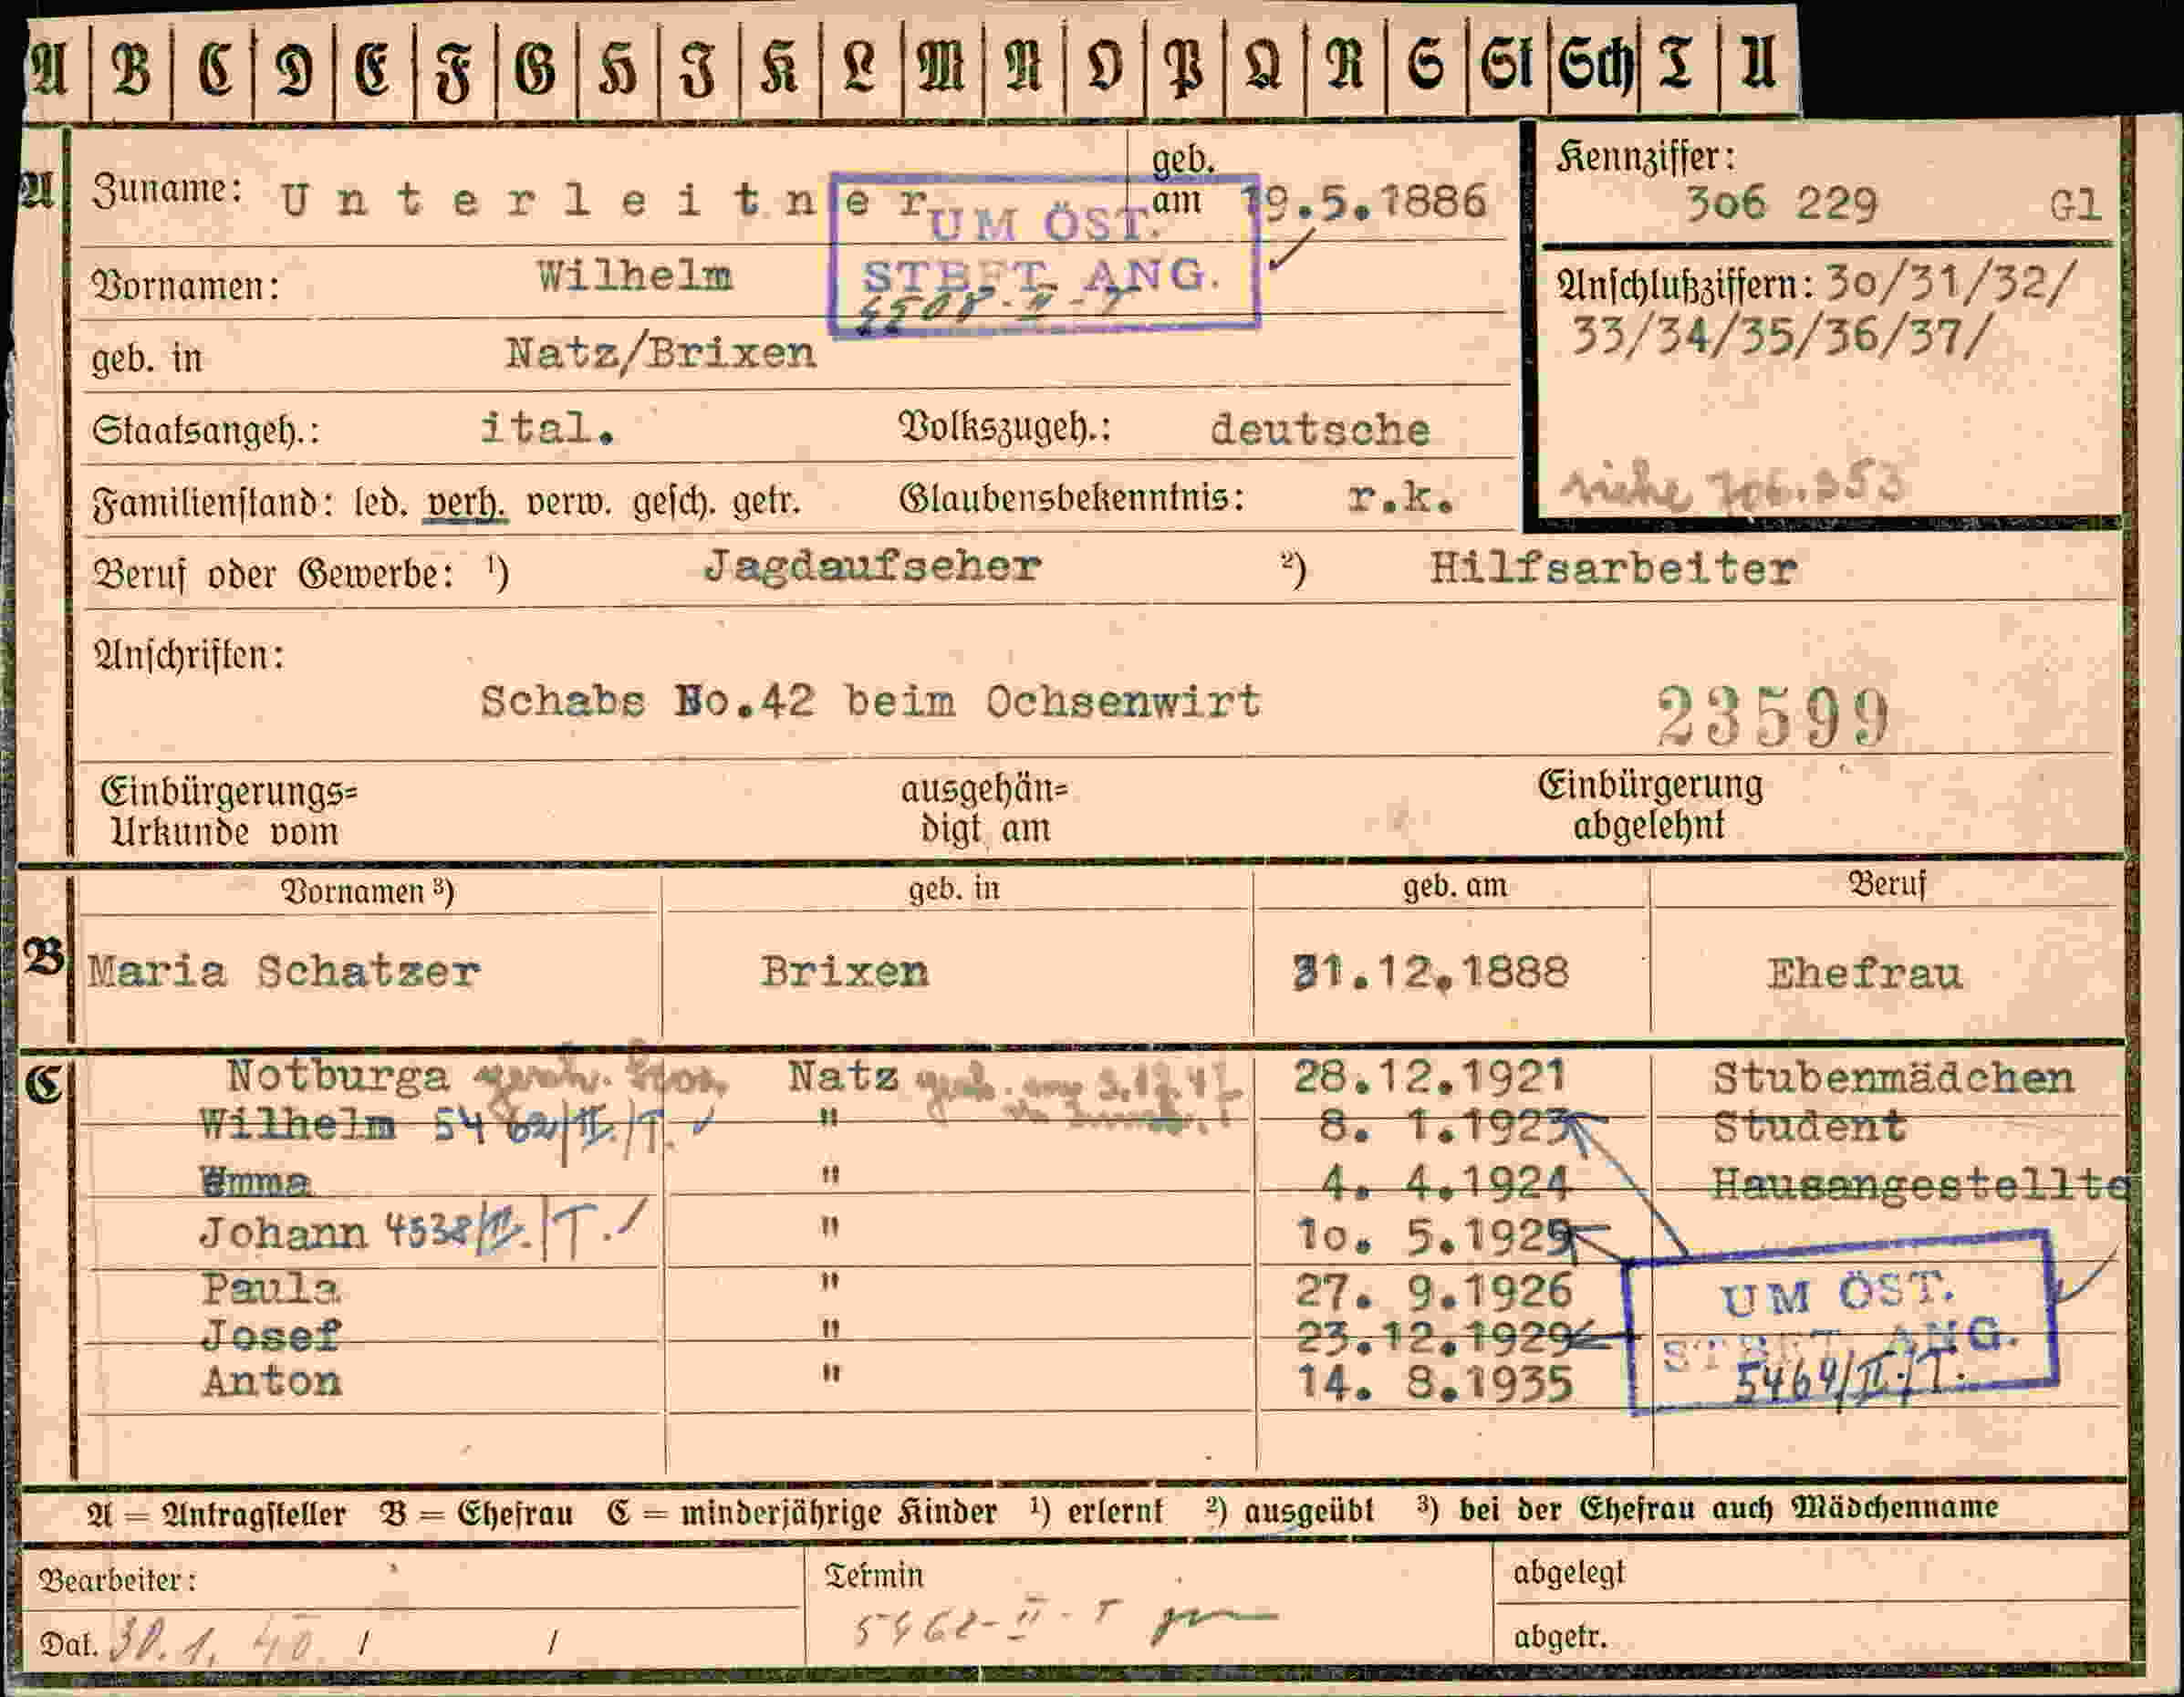 A B C D E F G H I K L M N O P Q R S St Sch T U
A Zuname: Unterleitner geb. am 19.5.1886
Kennziffer: 306 229 Gl
UM ÖST.
STBFT. ANG.
Vornamen: Wilhelm
geb. in Natz/Brixen
Anschlußziffern: 30/31/32/
33/34/35/36/37/
Staatsangeh.: ital. Volkszugeh.: deutsche
Familienstand: led. verh. verw. gesch. getr. Glaubensbekenntnis: r.k.
siehe 706.353
Beruf oder Gewerbe: 1) Jagdaufseher 2) Hilfsarbeiter
Anschriften:
Schabs No.42 beim Ochsenwirt 23599
Einbürgerungs= ausgehän= Einbürgerung
Urkunde vom digt am abgelehnt
Vornamen 3) geb. in geb. am Beruf
B Maria Schatzer Brixen 31.12.1888 Ehefrau
C Notburga Natz 28.12.1921 Stubenmädchen
Wilhelm 5462/II./T. " 8. 1.1923 Student
Emma " 4. 4.1924 Hausangestellte
Johann 4538/II./T. " 10. 5.1925
Paula " 27. 9.1926
Josef " 23.12.1929
Anton " 14. 8.1935
UM ÖST.
STBFT. ANG.
5464/II./T.
A = Antragsteller B = Ehefrau C = minderjährige Kinder 1) erlernt 2) ausgeübt 3) bei der Ehefrau auch Mädchenname
Bearbeiter: Termin abgelegt
Dat. 30.1.40 / / 5462-II-T abgetr.